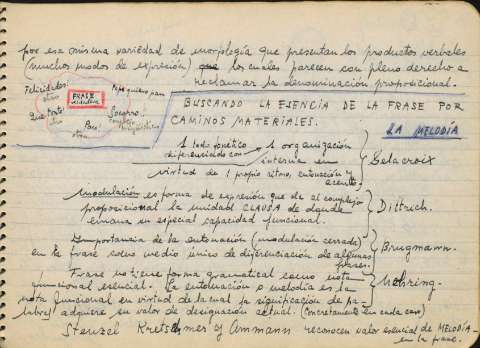 por esa misma variedad de morfología que presentan los productos verbales
(muchos modos de expresión) los cuales parecen con pleno derecho a
reclamar la denominación proposicional.
Felicidades!
otra
FRASE
Que tonto!
otra
Socorro!
Paz!
otra
BUSCANDO LA ESENCIA DE LA FRASE POR
CAMINOS MATERIALES.
LA MELODÍA
1 todo fonético
diferenciado con
1 organización
interna en
virtud de 1 propio ritmo, entonación y
acento
Gelacroix
Modulación es forma de expresión que da al complejo
proposicional la unidad CLAUSA de donde
emana su especial capacidad funcional.
Dittrich.
Importancia de la entonación (modulación cerrada)
en la frase como medio único de diferenciación de algunas
frases.
Brugmann.
Frase no tiene forma gramatical como nota
funcional esencial. La entonación o melodía es la
nota funcional en virtud de la cual la significación de pa-
labras adquiere su valor de designación actual. (concretamente en cada caso)
Nehring.
Stenzel Kretschmer y Ammann reconocen valor esencial de MELODÍA
en la frase.